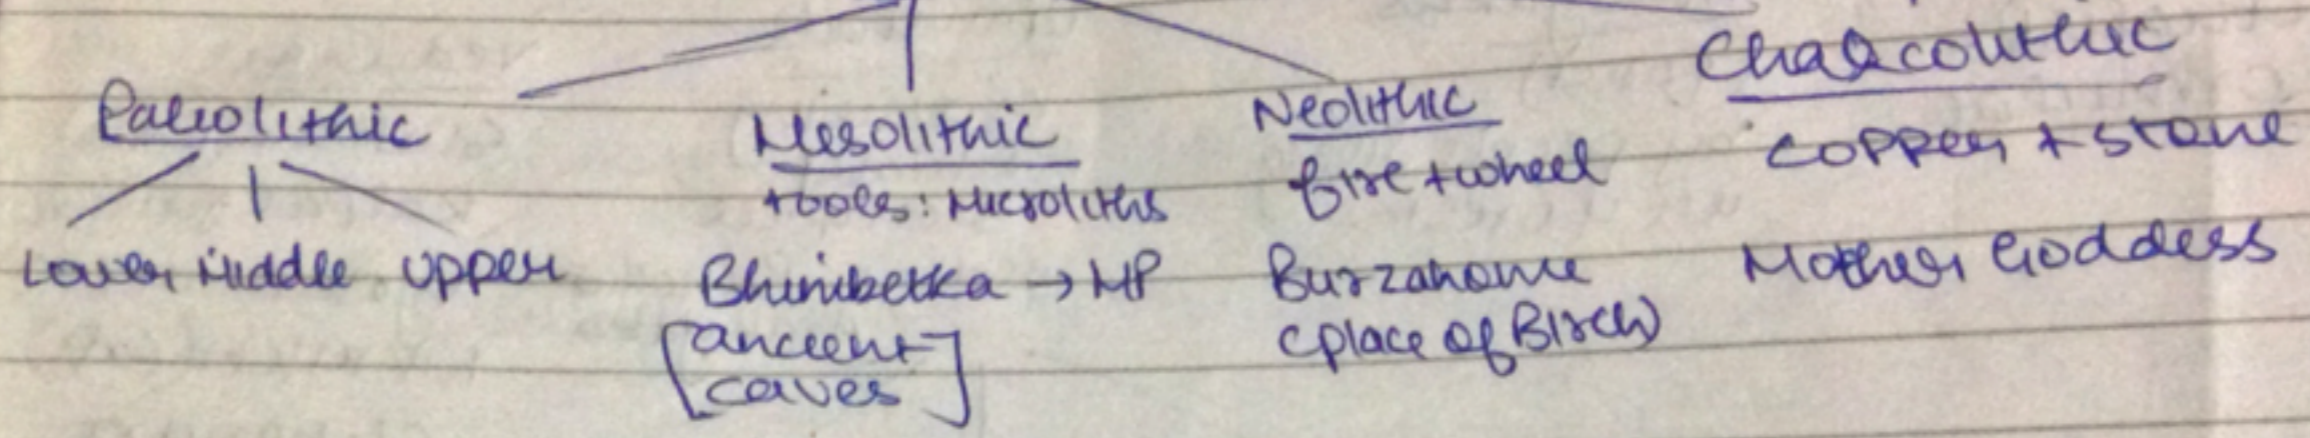 Paleolithic
Lower Middle Upper
Mesolithic
tools: Microliths
Bhimbetka → MP
[ancient
caves]
Neolithic
fire + wheel
Burzahome
(place of Birch)
Chalcolithic
copper + stone
Mother Goddess